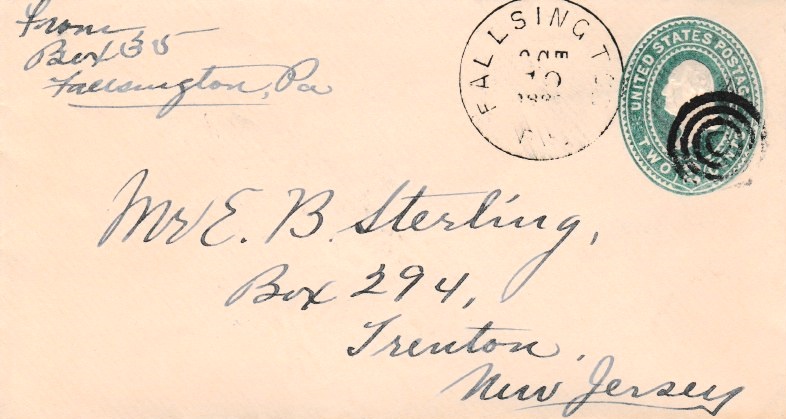 From
Box 35
Fallsington, Pa
FALLSINGT
UNITED STATES POSTAG
TWO
Mr E. B. Sterling,
Box 294,
Trenton,
New Jersey